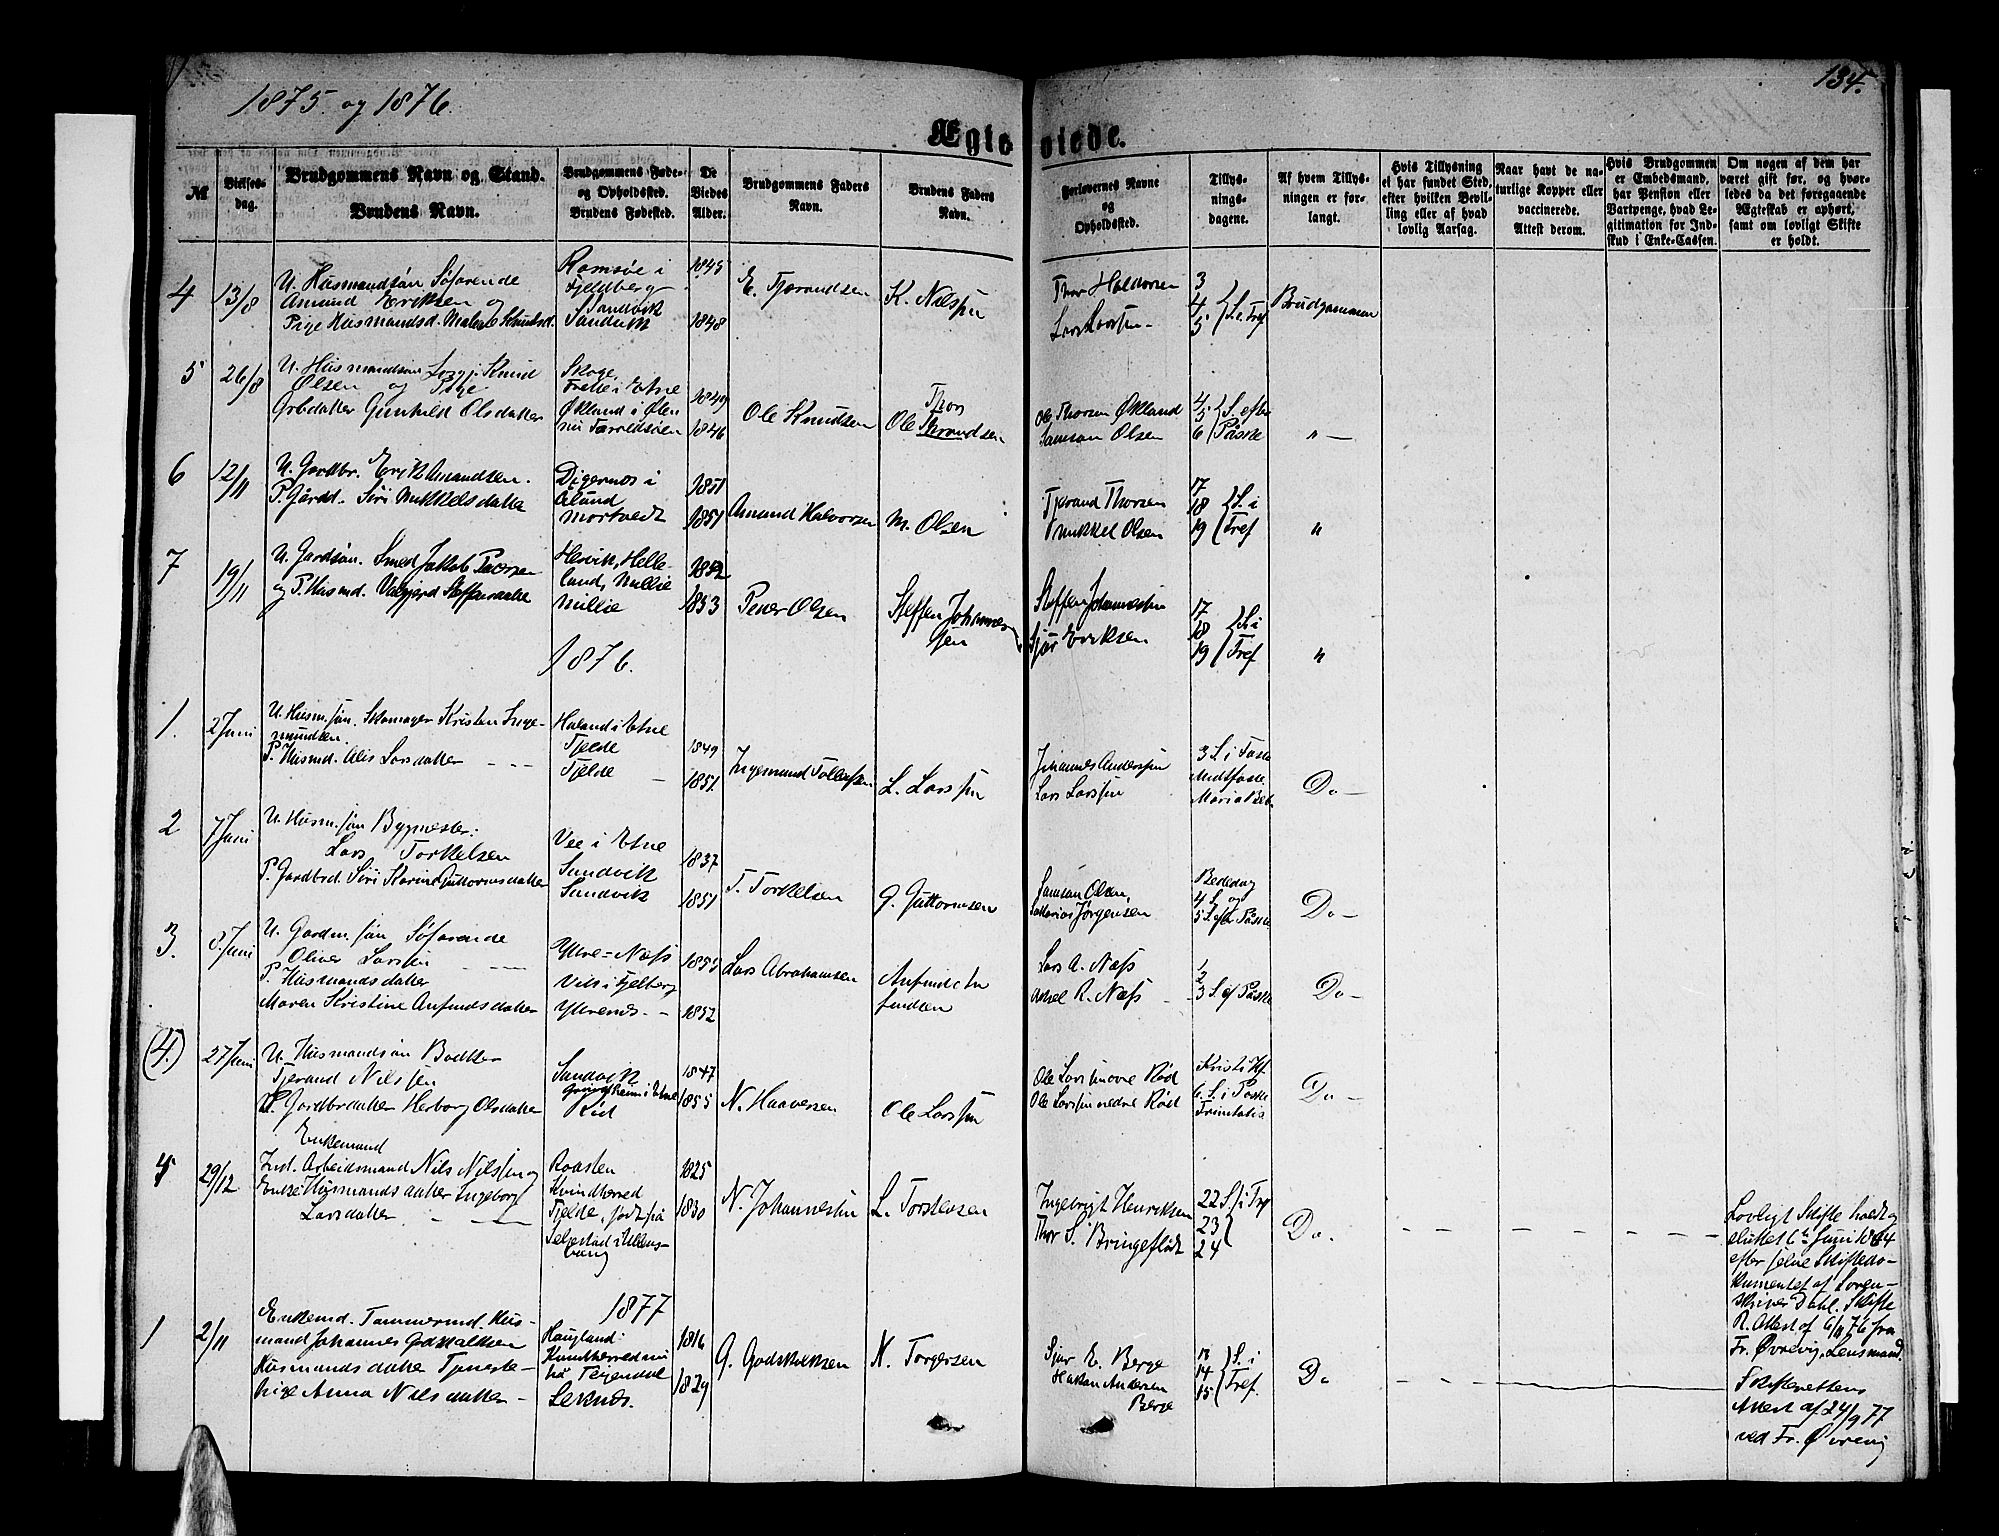 1875 og 1876.
134.
Ægteviede.
№
Vielses-
dag.
Brudgommens Navn og Stand.
Brudens Navn.
Brudgommens Føde-
og Opholdssted.
Brudens Fødested.
De
Viedes
Alder.
Brudgommens Faders
Navn.
Brudens Faders
Navn.
Forlovernes Navne
og
Opholdssted.
Tillys-
nings-
dagene.
Af hvem Tillys-
ningen er for-
langt.
Hvis Tillysning
ei har fundet Sted,
efter hvilken Bevil-
ling eller af hvad
lovlig Aarsag.
Naar havt de na-
turlige Kopper eller
vaccinerede.
Attest derom.
Hvis Brudgommen
er Embedsmand,
har Pension eller
Vartpenge, hvad Le-
gitimation for Ind-
skud i Enke-Cassen.
Om nogen af dem har
været gift før, og hvor-
ledes da det foregaaende
Ægteskab er ophørt,
samt om lovligt Skifte
er holdt.
4
13/8
U. Husmandsøn Søfarende
Amund Eriksen og
Pige Husmandsd. Malene Knutsd.
Romsøe i
Fjeldberg
Sandvik
Sandvik
1845
1848
E. Tjerandsen
K. Nilsen
Thor Haldorsen
Lars Larssen
3
4
5
S. e. Tref
Brudgommen
5
26/8
U. Husmandsøn Knud
Olsen og Pige
Grbdatter Gunhild Olsdatter
Skoge,
Frette i Etne
Økland i Ølen
nu Færredsøen
1849
1846
Ole Knudsen
Thor
Ole Thrandsen
Ole Thorsen Økland
Samson Olsen
4
5
6
S. efter
Påske
" —
6
12/11
U. Gardbr. Erik Amundsen.
P. Gårdd. Siri Mikkelsdatter
Digernes i
Ølund
Mortvedt
1851
1851
Amund Halvorsen
M. Olsen
Tjerand Thorsen
Mikkel Olsen
17
18
19
S. i
Tref
"
7
19/11
U. Gardsøn. Smed Jakob Pedersen
og P. Husmd. Valgjerd Steffensdatter
Hervik, Helle-
land, Millie
Millie
1852
1853
Peder Olsen
Steffen Johannes-
sen
Steffen Johannessen
Sjur Eriksen
17
18
19
S. i
Tref
"
1876.
1.
2 Juni
U. Husm. søn. Skomager Kristen Inge-
mundsen.
P. Husmd. Alis Larsdatter
Haland i Etne
Tjelde
Tjelde
1849
1851
Ingemund Tollefsen
L. Larssen
Johannes Anderssen
Lars Larssen
3 S. i Faste
Midtfaste
Maria Beb.
Do —
2
7 Juni
U. Husm. søn Bygmester:
Lars Torkelsen
P. Gardbrd. Siri Karine Guttormsdatter
Vee i Etne
Sandvik
Sandvik
1837
1851
T. Torkelsen
G. Guttormsen
Samson Olsen,
Sakarias Jørgensen
Bededag
4 S. og
5 S. eft Påske
Do —
3.
8 Juni
U. Gardm. søn Søfarende
Oliver Larsen
P. Husmandsdatter
Maren Kristine Anfindsdatter
Ytre=Næss
Vils i Fjelberg
Ytrenes
1853
1852
Lars Abrahamsen
Anfind An-
findsen
Lars A. Næss
Aksel R. Næss
1
2
3 S. ef Påske
Do —
(4.)
27 Juni
U. Husmandsøn Bødker
Tjerand Nilssen
P. Gardbrdatter Herborg Olsdatter
Sandvik
Grindheim i Etne
Rød
1847
1855
N. Haaversen
Ole Larssen
Ole Larssen øvre Rød
Ole Larssen nedre Rød
Kristi Hf.
6. S. i Paske
Trinitatis
Do —
5
29/12
Enkemand
Ind. Arbeidsmand Nils Nilssen og
Enke Husmandsdatter Ingeborg
Larsdatter
Roasten
Kvindherred
Tjelde, født på
Selvestad i Ullens-
vang
1825
1830
N. Johannessen
L. Torstensen
Ingebrigt Henriksen
Thor S. Bringefløt
22 S. i Tref
23
24
Do.
Lovligt Skifte holdt og
sluttet 6te Juni 1864
efter selve Skiftedo-
kumentet af Soren-
skriver Dahl. Skifte
R. Attest af 6/11 76 fra
Fr. Øvrevig, Lensmand.
1877
1
2/11
Enkemd. Tømmermd. Hus-
mand Johannes Godskalksen
Husmandsdatter Tjeneste-
pige Anna Nilsdatter
Haugland
Kvindherred nu
på Teigendal
Leknes.
1816
1829
G. Godskalksen
N. Torgersen
Sjur E. Berge
Hakon Andersen
Berge
13
14
15
S. i
Tref.
Do
Skifterettens
Attest af 24/9 77
ved Fr. Øvrevig